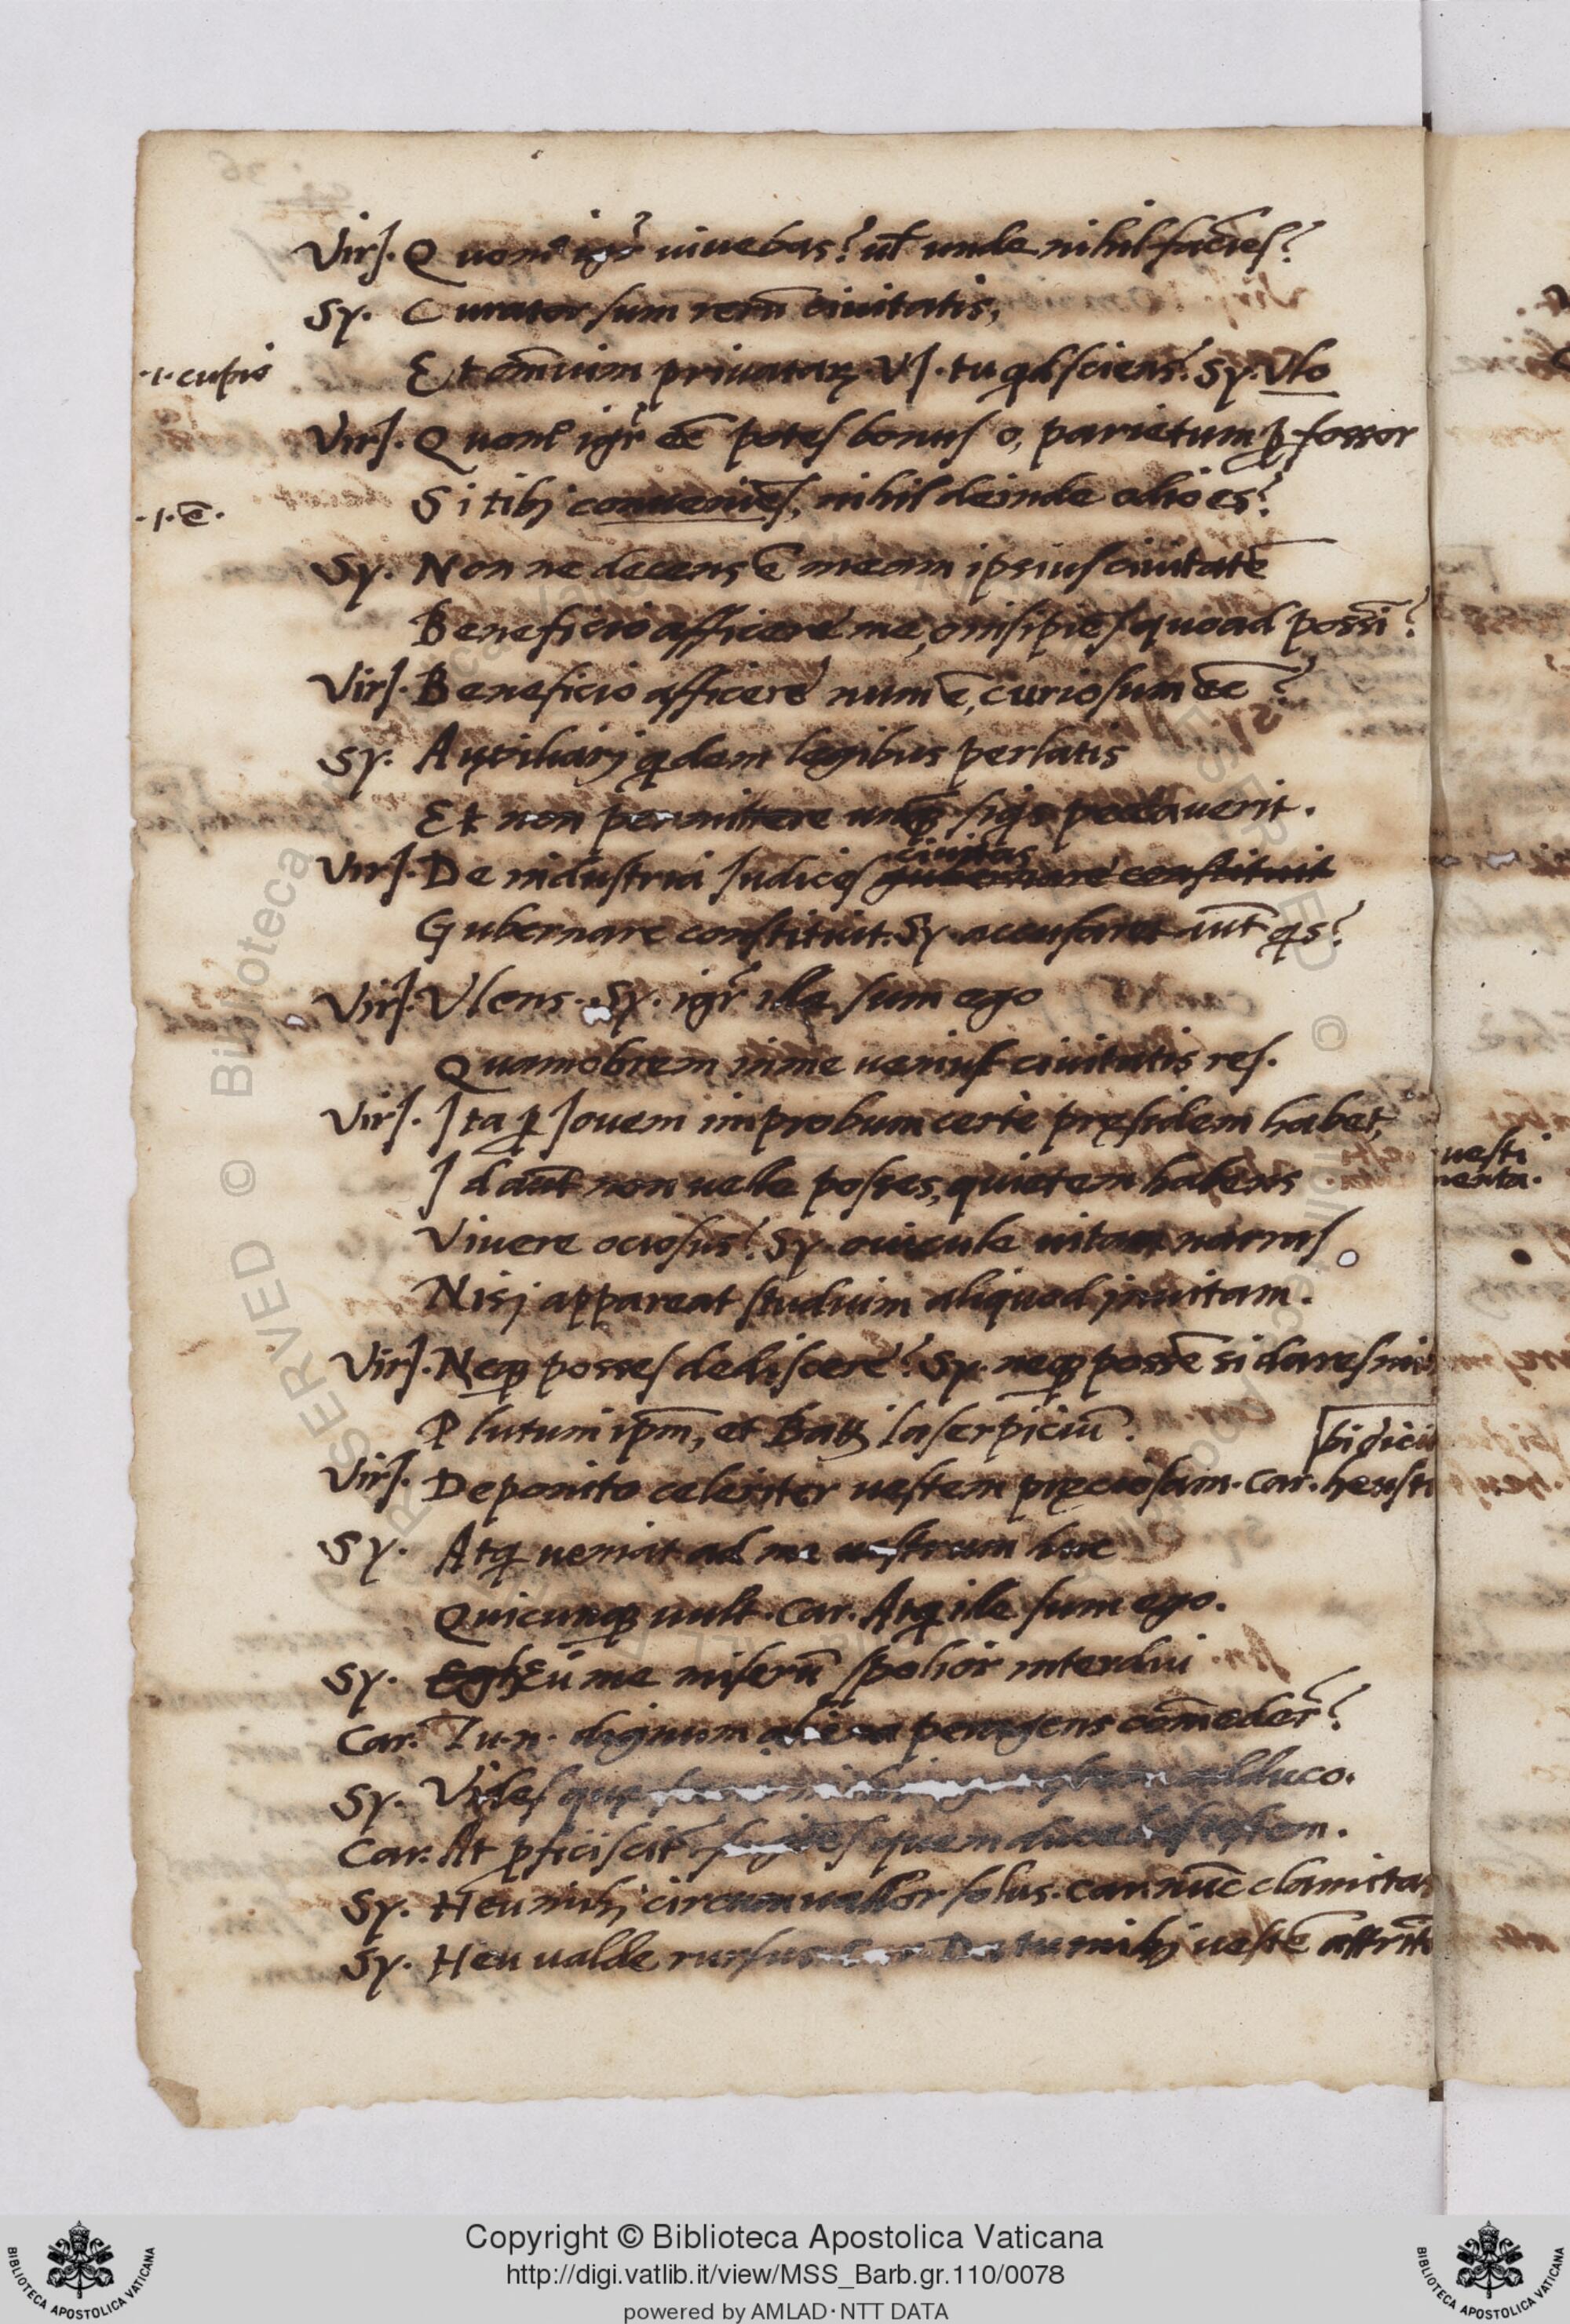 Virj. Quom° igr̄ uiuebas? ul̄ unde nihil faciēs?
Sy. Curator sum rerū ciuitatis,
.i. cupio
Et omnium priuatarꝝ. Vj. tu qd sciens? Sy. Vlo
Virj. Quom° igr̄ eē potes bonus o, parietum ꝑfossor
Si tibj conueniēs, nihil deinde odio es?
.i. ē.
Sy. Non ne decens ē meam ipsius ciuitatē
Beneficio afficere me, o insipiēs quoad possī?
Virj. Beneficio afficere num ē, curiosum eē?
Sy. Auxiliarj qdem legibus perlatis
Et non permittere unqȝ siqs peccauerit.
ciuitas
Virj. De industria Judices gubernare constituit
Gubernare constituit. Sy. accusaret aut̄ qs?
Virj. Vlens. Sy. igr̄ ille sum ego
Quamobrem in me ueniūt ciuitatis res.
Virj. Ita ꝑ Jouem improbum certe pręsidem habet,
Id aut̄ non uelle posses, quietem habens
Viuere ociosus? Sy. ouicule uitam narras
Nisj appareat studium aliquod in uitam.
Virj. Neqȝ posses dediscere? Sy. neqȝ possē si dares mi
Plutum ipm̄, et Battj laserpiciū.
bi dicit
Virj. Deponito celeriter uestem pręciosam. Car. heus ti
Sy. Atqȝ ueniat ad me uestrum huc
Quicunqȝ uult. Car. Atqȝ ille sum ego.
Sy. Egh Eu me miserū spolior interdiu
Car. Tu .n. dignum aliena peragens comeder̄?
Sy. Vides que adduco.
Car. At ꝓficiscit̄ fugiēs quem ducebas testem.
Sy. Heu mihj circumuallor solus. Car. nūc clamitas
Sy. Heu ualde rursus Car. Da tu mihj uestē attrit
uesti
menta.
Copyright © Biblioteca Apostolica Vaticana
http://digi.vatlib.it/view/MSS_Barb.gr.110/0078
powered by AMLAD·NTT DATA
BIBLIOTECA APOSTOLICA VATICANA
BIBLIOTECA APOSTOLICA VATICANA